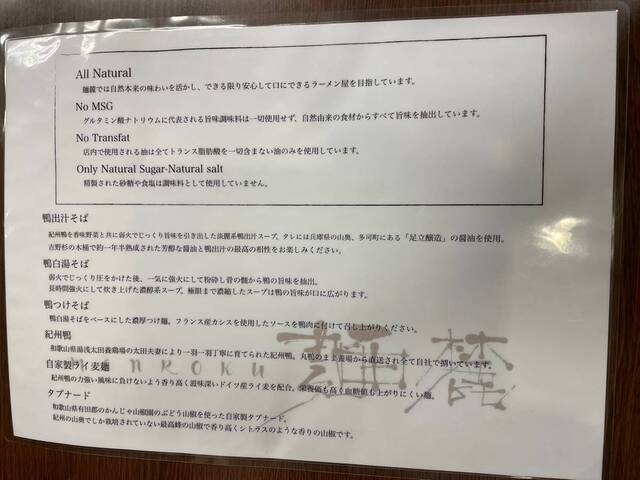 All Natural
麺麓では自然本来の味わいを活かし、できる限り安心して口にできるラーメン屋を目指しています。
No MSG
グルタミン酸ナトリウムに代表される旨味調味料は一切使用せず、自然由来の食材からすべて旨味を抽出しています。
No Transfat
店内で使用される油は全てトランス脂肪酸を一切含まない油のみを使用しています。
Only Natural Sugar-Natural salt
精製された砂糖や食塩は調味料として使用していません。
鴨出汁そば
紀州鴨を香味野菜と共に弱火でじっくり旨味を引き出した淡麗系鴨出汁スープ。タレには兵庫県の山奥、多可町にある「足立醸造」の醤油を使用。
吉野杉の木桶で約一年半熟成された芳醇な醤油と鴨出汁の最高の相性をお楽しみください。
鴨白湯そば
弱火でじっくり圧をかけた後、一気に強火にして粉砕し骨の髄から鴨の旨味を抽出。
長時間強火にして炊き上げた濃醇系スープ。極限まで濃縮したスープは鴨の旨味が口に広がります。
鴨つけそば
鴨白湯そばをベースにした濃厚つけ麺。フランス産カシスを使用したソースを鴨肉に付けて召し上がりください。
紀州鴨
和歌山県湯浅太田養鶏場の太田夫妻により一羽一羽丁寧に育てられた紀州鴨。丸鴨のまま養場から直送され全て自社で捌いています。
自家製ライ麦麺
紀州鴨の力強い風味に負けないよう香り高く滋味深いドイツ産ライ麦を配合。栄養価も高く血糖値も上がりにくい麺。
タプナード
和歌山県有田郡のかんじゃ山椒園のぶどう山椒を使った自家製タプナード。
紀州の山奥でしか栽培されていない最高峰の山椒で香り高くシトラスのような香りの山椒です。
MENROKU
麺麓